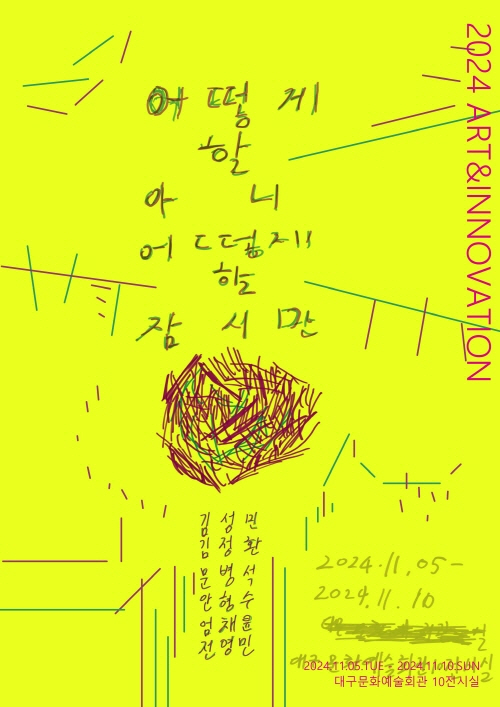 2024 ART&INNOVATION
어떻게
할
아니
어떻게
할
잠시만
김성민
김정환
문병석
안형수
엄채윤
전영민
2024.11.05-
2024.11.10
2024.11.05.TUE - 2024.11.10.SUN
대구문화예술회관 10전시실